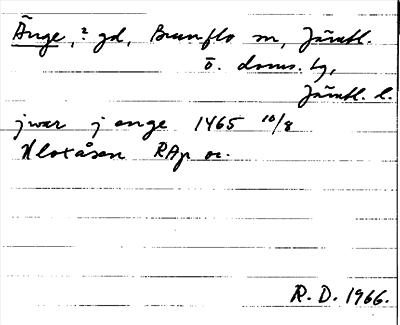 Änge,² gd, Brunflo sn, Jämtl.
ö. doms. hg,
Jämtl. l.
j war j enge 1465 10/8
Hloxåsen RAp or.
R. D. 1966.